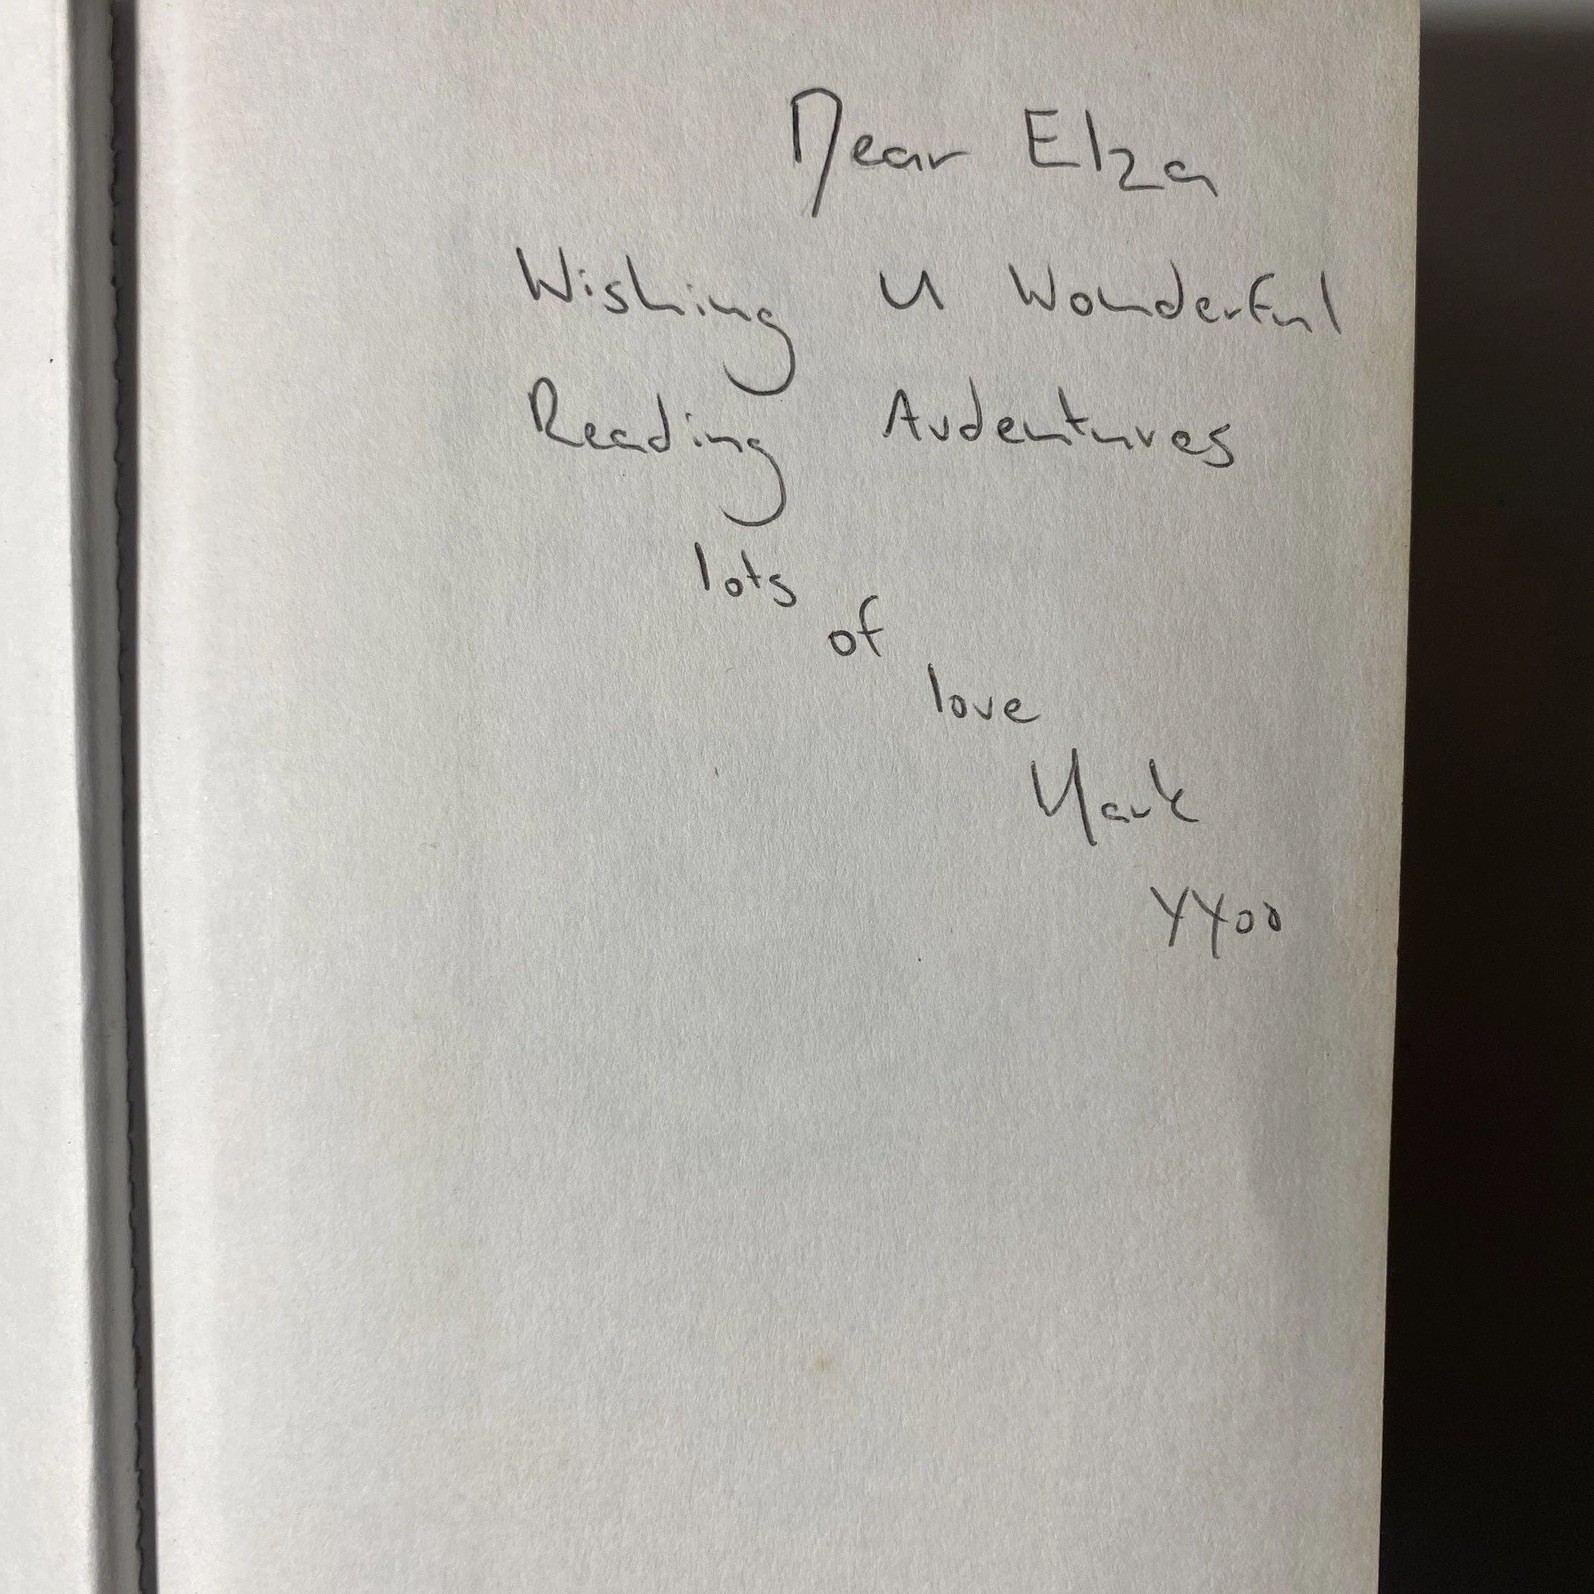 Dear Elza
Wishing U Wonderful
Reading Avdentures
lots
of
love
Mark
XXoo